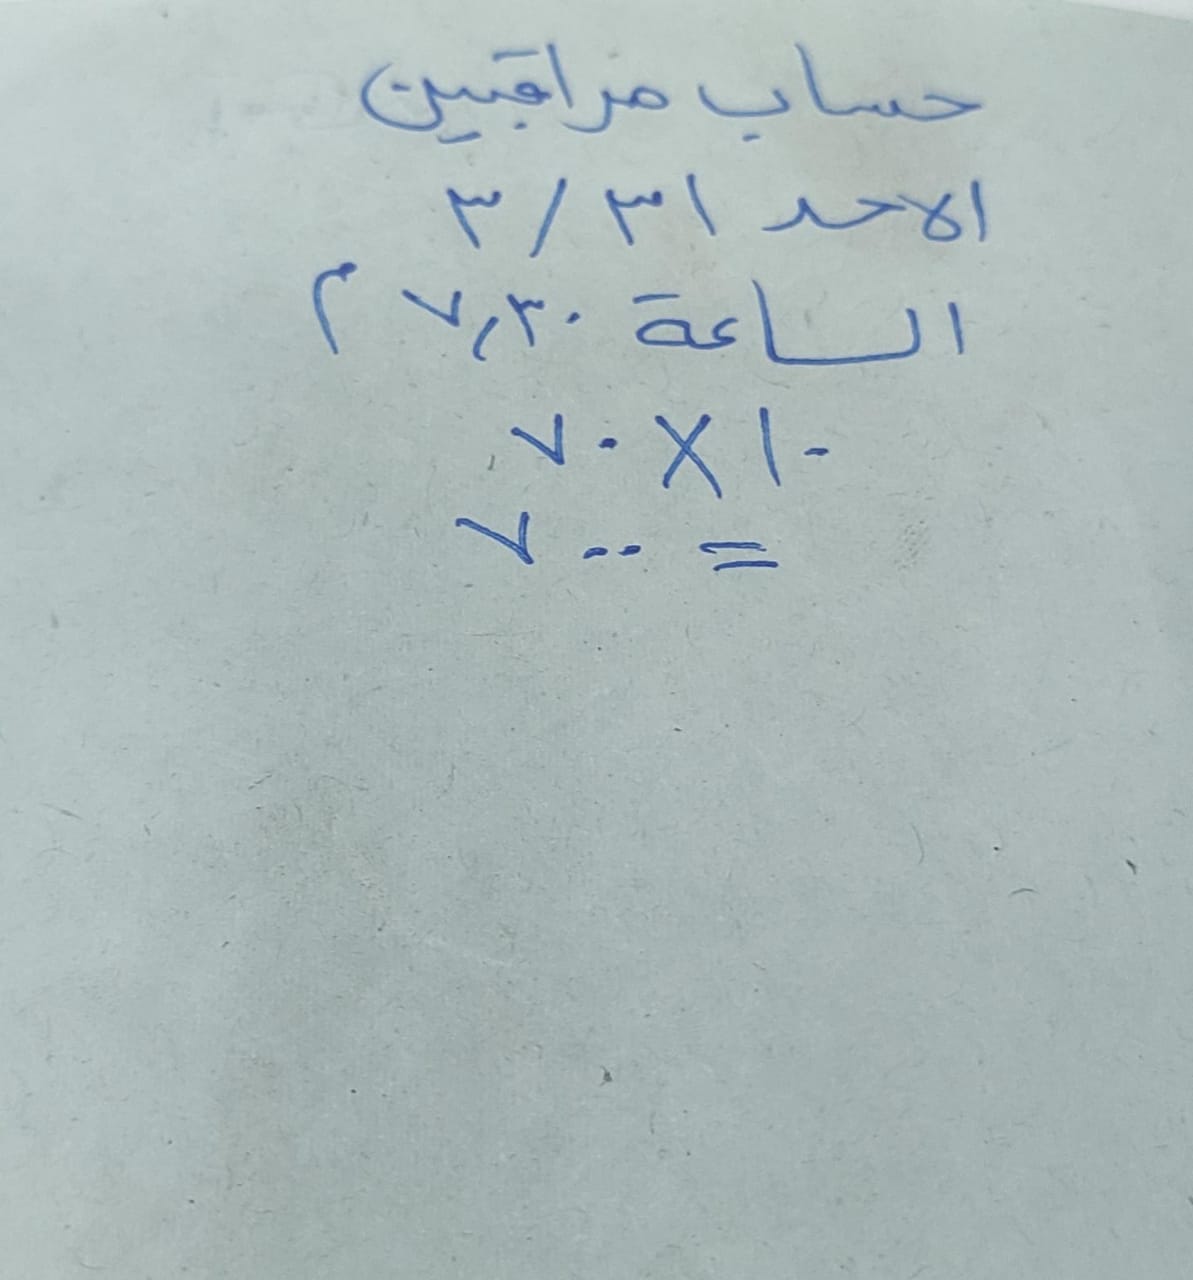 حساب مراقبين
الاحد ٣١ / ٣
الساعة ٧,٣٠ م
١٠ X ٧٠
= ٧٠٠